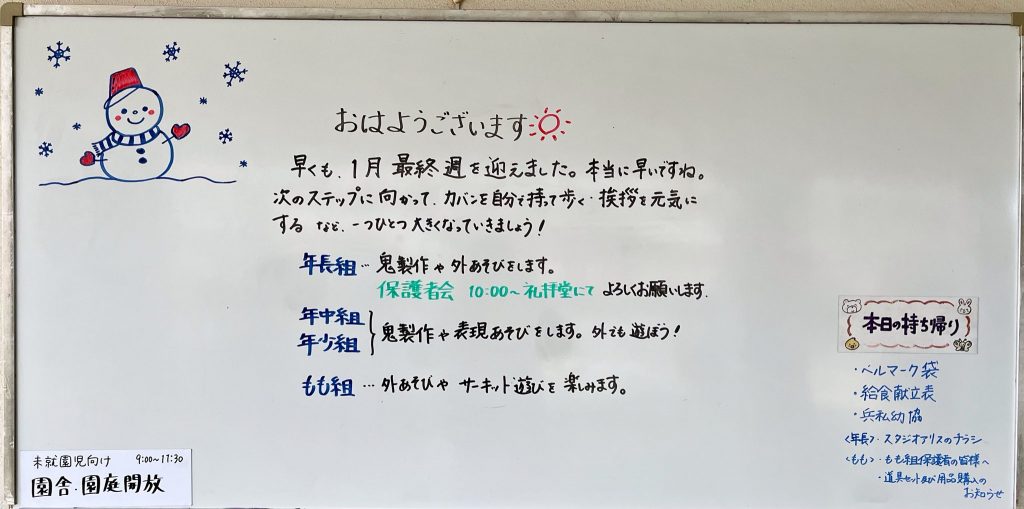 おはようございます
早くも、1月 最終週を迎えました。本当に早いですね。
次のステップに向かって、カバンを自分で持って歩く・挨拶を元気に
する など、一つひとつ大きくなっていきましょう!
年長組…鬼製作や外あそびをします。
保護者会 10:00〜礼拝堂にて よろしくお願いします.
年中組
年少組
鬼製作や表現あそびをします。外でも遊ぼう!
もも組…外あそびやサーキット遊びを楽しみます。
本日の持ち帰り
・ベルマーク袋
・給食献立表
・兵私幼協
<年長>・スタジオアリスのチラシ
<もも>・もも組保護者の皆様へ
・道具セット及び用品購入の
お知らせ
未就園児向け 9:00〜11:30
園舎・園庭開放